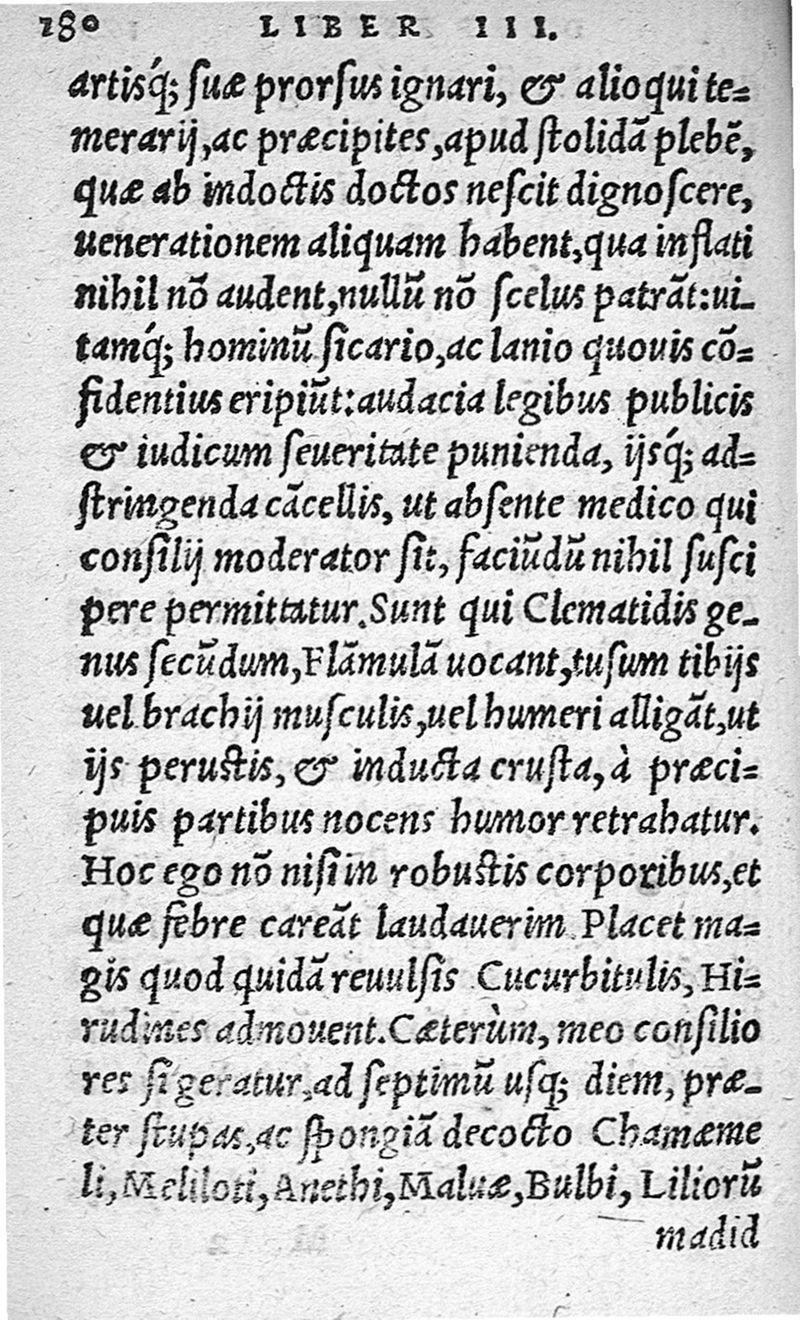 180 LIBER III.
artisq́; ſuæ prorſus ignari, & alioqui te=
merarij, ac præcipites, apud ſtolidā plebē,
quæ ab indoctis doctos neſcit dignoſcere,
uenerationem aliquam habent, qua inflati
nihil nō audent, nullū nō ſcelus patrāt: ui-
tamq́; hominū ſicario, ac lanio quouis cō=
fidentius eripiūt: audacia legibus publicis
& iudicum ſeueritate punienda, ijsq́; ad=
ſtringenda cācellis, ut abſente medico qui
conſilij moderator ſit, faciūdū nihil ſuſci
pere permittatur. Sunt qui Clematidis ge-
nus ſecūdum, Flāmulā uocant, tuſum tibijs
uel brachij muſculis, uel humeri alligāt, ut
ijs peruſtis, & inducta cruſta, à præci=
puis partibus nocens humor retrahatur.
Hoc ego nō niſi in robuſtis corporibus, et
quæ febre careāt laudauerim. Placet ma=
gis quod quidā reuulſis Cucurbitulis, Hi=
rudines admouent. Cæterùm, meo conſilio
res ſi geratur, ad ſeptimū uſq; diem, præ-
ter ſtupas, ac ſpongiā decocto Chamæme
li, Meliloti, Anethi, Maluæ, Bulbi, Liliorū
madid